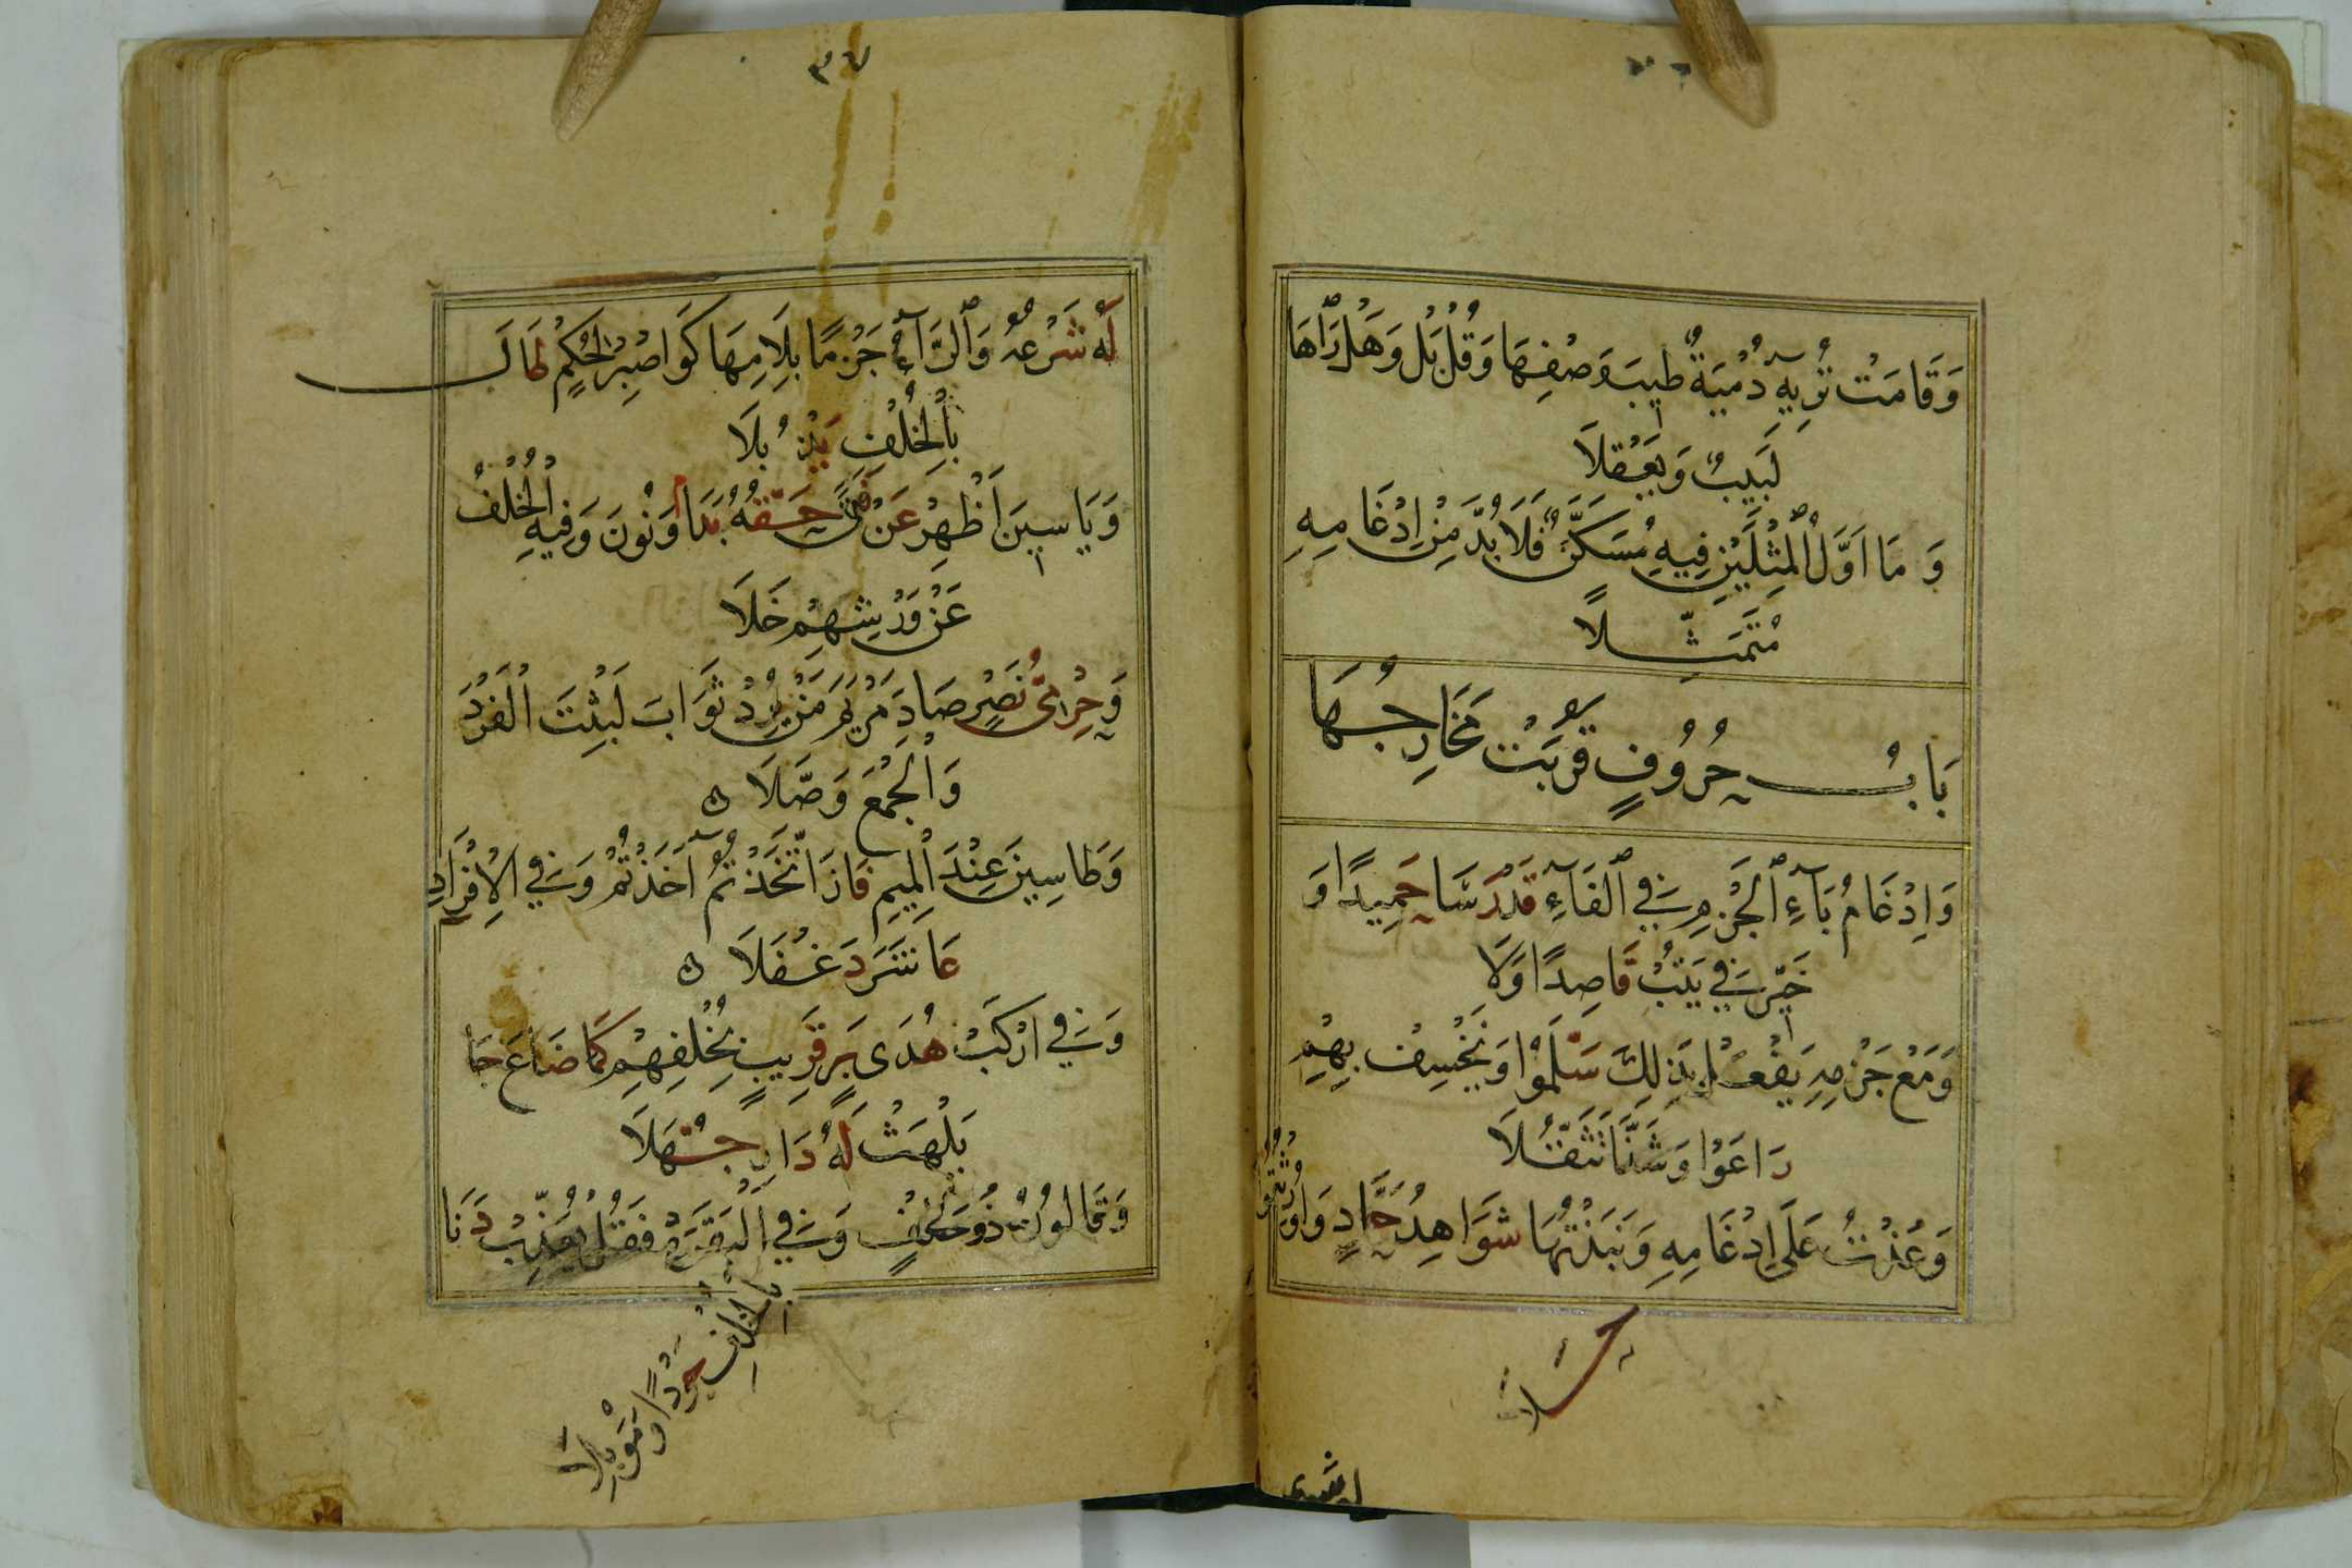 وَقَامَتْ تُرِيهِ دُمْيَةٌ طِيبَ وَصْفِهَا وَقُلْ بَلْ وَهَلْ رَاهَا
لَبِيبٌ وَيَعْقِلَا
وَمَا اَوَّلُ الْمِثْلَيْنِ فِيهِ مُسَكَّنٌ فَلَا بُدَّ مِنْ اِدْغَامِهِ
مُتَمَثِّلًا
بَابُ حُرُوفٍ قَرُبَتْ مَخَارِجُهَا
وَاِدْغَامُ بَآءِ الْجَزْمِ فِي الْفَآءِ قَدْ رَسَا حَمِيدًا وَ
خَيِّرْ فِي يَتُبْ قَاصِدًا وَلَا
وَمَعْ جَزْمِهِ يَفْعَلْ بِذَلِكَ سَلَّمُوا وَنَخْسِفْ بِهِمْ
رَاعَوْا وَشَذَّا تَثَقُّلَا
وَعُذْتُ عَلَى اِدْغَامِهِ وَنَبَذْتُهَا شَوَاهِدُ حَمَّادٍ وَاُورِثْتُمُو
حَلَا
٣٧
لَهُ شَرْعُهُ وَالرَّآءُ جَزْمًا بِلَامِهَا كَوَاصْبِرْ لِحُكْمِ طَالَ
بِالْخُلْفِ يَذْبُلَا
وَيَاسِينَ اَظْهِرْ عَنْ فَتًى حَقُّهُ بَدَا وَنُونَ وَفِيهِ الْخُلْفُ
عَنْ وَرْشِهِمْ خَلَا
وَحِرْمِيُّ نَصْرٍ صَادَ مَرْيَمَ مَنْ يُرِدْ ثَوَابَ لَبِثْتَ الْفَرْدَ
وَالْجَمْعَ وَصَّلَا ۞
وَطَاسِينَ عِنْدَ الْمِيمِ فَازَ اتَّخَذْتُمُ اَخَذْتُمْ وَفِي الْاِفْرَادِ
عَاشَرَ دَغْفَلَا ۞
وَفِي ارْكَبْ هُدَى بَرٍّ قَرِيبٍ بِخُلْفِهِمْ كَمَا ضَاعَ جَا
يَلْهَثْ لَهُ دَارِ جُهَّلَا
وَقَالُونُ ذُو خُلْفٍ وَفِي الْبَقَرَهْ فَقُلْ يُعَذِّبْ دَنَا
بِالْخُلْفِ جَوْدًا وَمُوبِلَا